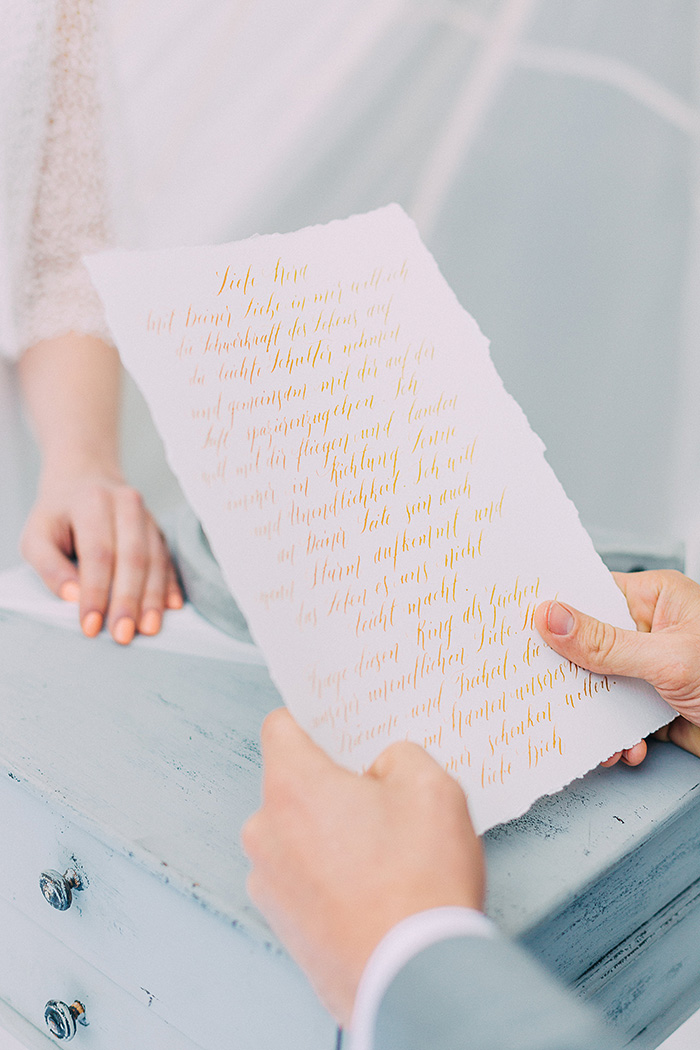 Liebe
Mit Deiner Liebe in mir will ich
die Schwerkraft des Lebens auf
die leichte Schulter nehmen
und gemeinsam mit dir auf der
Luft spazierenzugehen. Ich
will mit dir fliegen und landen
immer in Richtung Sonne
und Unendlichkeit. Ich will
an Deiner Seite sein auch
wenn Sturm aufkommt und
das Leben es uns nicht
leicht macht.
Trage diesen Ring als Zeichen
unserer unendlichen Liebe.
und Freiheit, die
im Namen unseres
schenken wollen.
liebe Dich